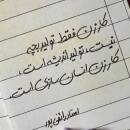 کار زن فقط تولید بچه
نیست، تولید اندیشه است،
کار زن انسان سازی است.
استاد رائفی پور